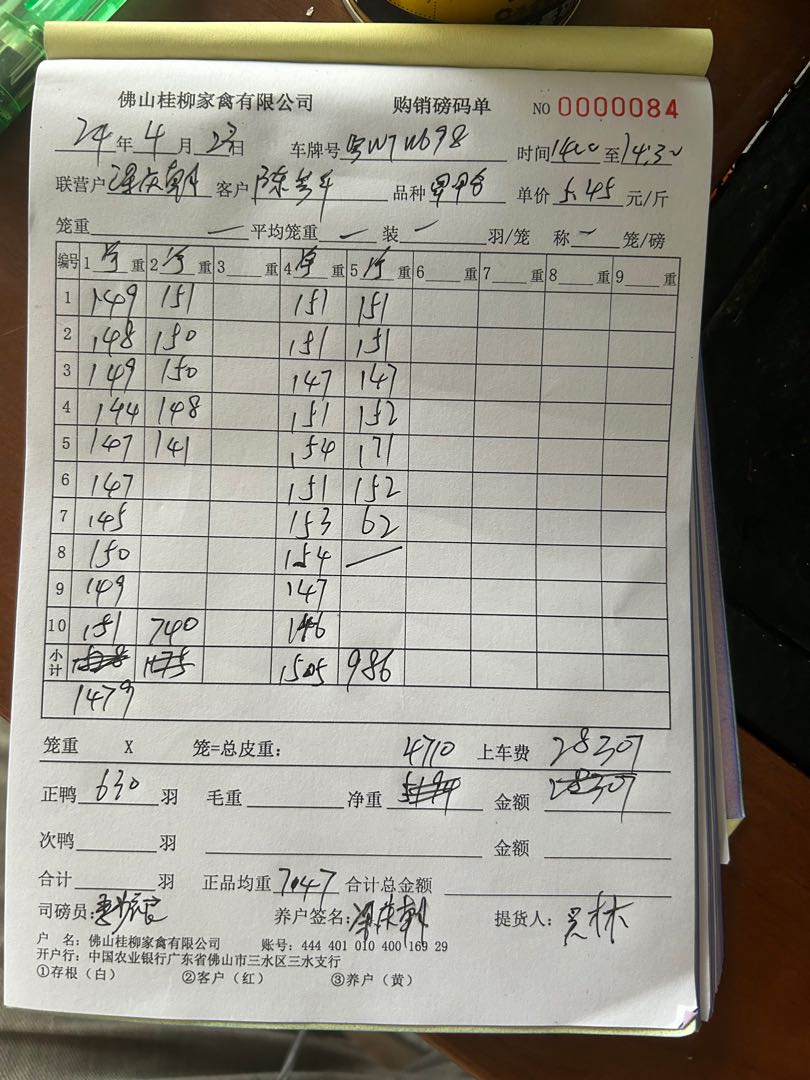 佛山桂柳家禽有限公司 购销磅码单 NO 0000084
24年4月23日 车牌号粤W7W698 时间1400至14:30
联营户 客户陈 品种 单价5.45元/斤
笼重 一 平均笼重 一 装 一 羽/笼 称 一 笼/磅
编号 1净重 2净重 3 重 4净重 5净重 6 重 7 重 8 重 9 重
1 149 151 151 151
2 148 150 151 151
3 149 150 147 147
4 144 148 151 152
5 147 141 154 171
6 147 151 152
7 145 153 62
8 150 154 —
9 149 147
10 151 740 146
小计 1475 1505 986
1479
笼重 X 笼=总皮重： 4710 上车费 28307
正鸭630羽 毛重 净重 金额28307
次鸭 羽 金额
合计 羽 正品均重7.47 合计总金额
司磅员： 养户签名： 提货人：
户 名：佛山桂柳家禽有限公司 账号：444 401 010 400 169 29
开户行：中国农业银行广东省佛山市三水区三水支行
①存根（白） ②客户（红） ③养户（黄）